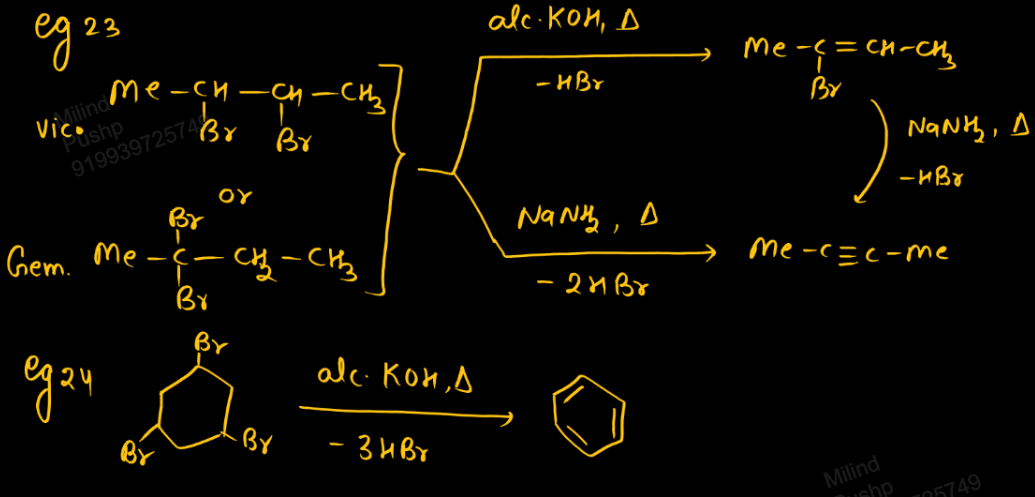 eg 23
Me - CH - CH - CH3
Br Br
vic.
or
Br
Gem. Me - C - CH2 - CH3
Br
alc. KOH, Δ
- HBr
Me - C = CH - CH3
Br
NaNH2, Δ
- HBr
NaNH2, Δ
- 2HBr
Me - C ≡ C - Me
eg 24
Br
Br Br
alc. KOH, Δ
- 3HBr
Milind
Pushp
919939725749
Milind